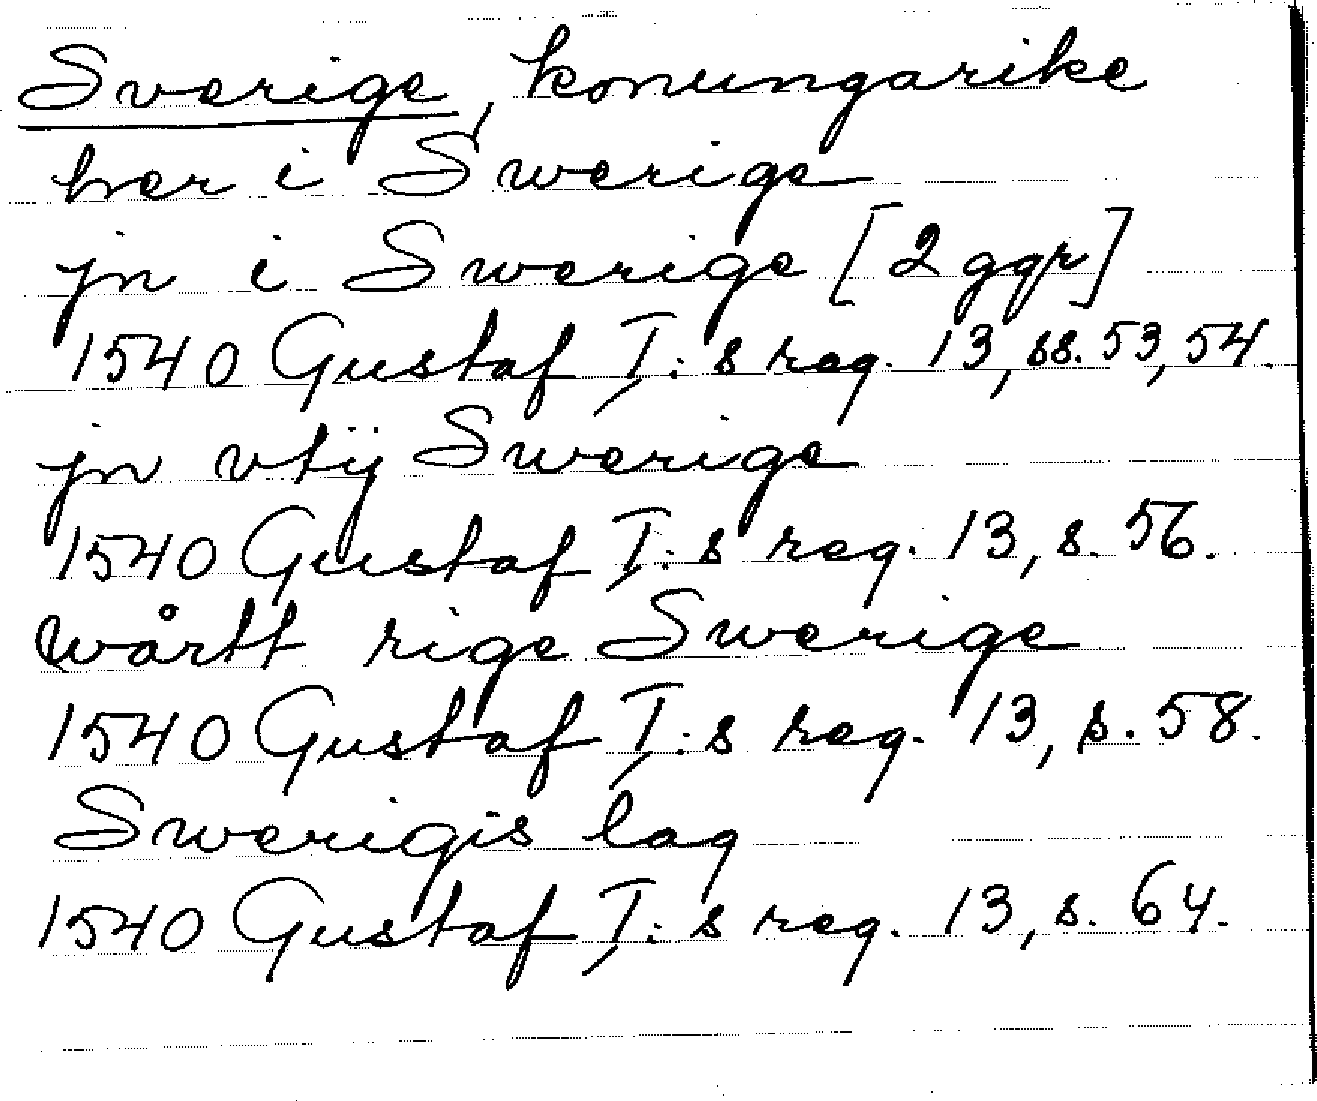 Sverige, konungarike
her i Swerige
jn i Swerige [2 ggr]
1540 Gustaf I:s reg. 13, ss. 53, 54.
jn vtij Swerige
1540 Gustaf I:s reg. 13, s. 56.
wårtt rige Swerige
1540 Gustaf I:s reg. 13, s. 58.
Swerigis lag
1540 Gustaf I:s reg. 13, s. 64.